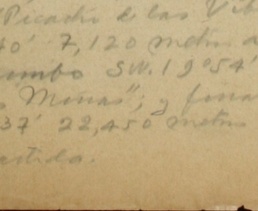 "Picacho de las Vib
40' 7,120 metros a
rumbo SW. 19°54'
s Minas"; y fina
37' 22,450 metros
artida.